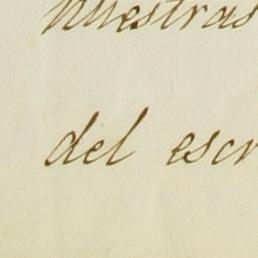 nuestras
del escr